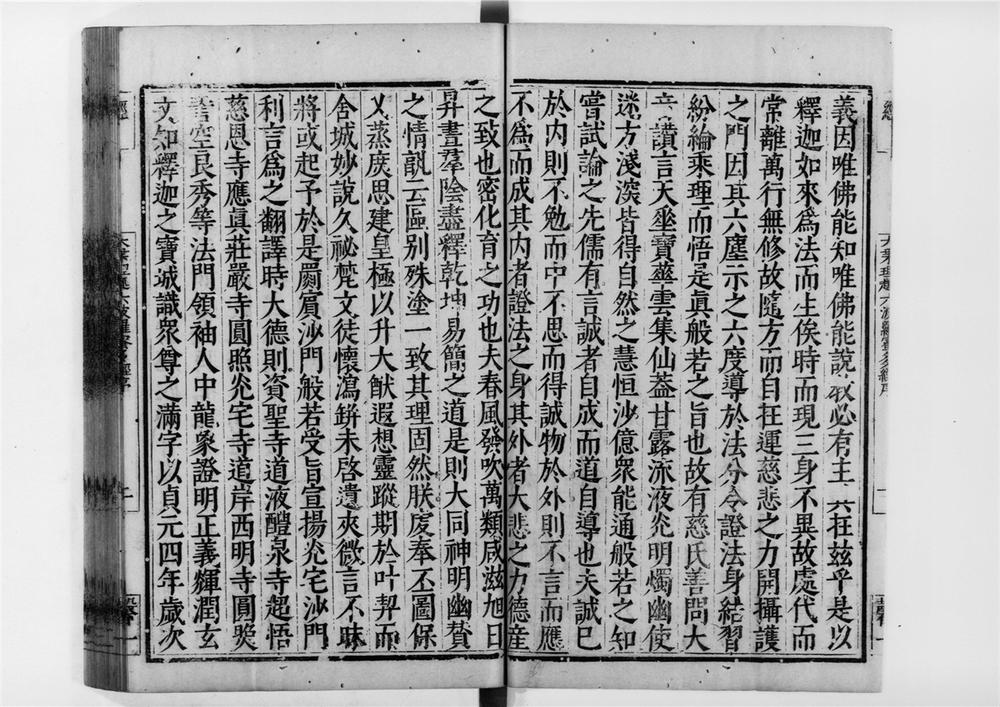 義因唯佛能知唯佛能說故必有主 其在茲乎是以
釋迦如來爲法而生俟時而現三身不異故處代而
常離萬行無修故隨方而自在運慈悲之力開攝護
之門因其六塵示之六度導於法分令證法身結習
紛綸乘理而悟是眞般若之旨也故有慈氏善問大
讚言天坐寶華雲集仙盖甘露泳液光明燭幽使
迷方淺深皆得自然之慧恒沙億衆能通般若之知
嘗試論之先儒有言誠者自成而道自導也夫誠已
於内則不勉而中不思而得誠物於外則不言而應
不爲而成其内者證法之身其外者大悲之力德産
之致也密化育之功也夫春風發吹萬類咸滋旭日
昇晝羣陰盡釋乾坤易簡之道是則大同神明幽贊
之情䛒云區別殊塗一致其理固然朕虔奉丕圖保
乂蒸庶思建皇極以升大猷遐想靈蹤期於叶契而
舍城妙說久祕梵文徒懷瀉缾未啓遺夾微言不昧
將或起予於是罽賓沙門般若受旨宣揚光宅沙門
利言爲之翻譯時大德則資聖寺道液醴泉寺超悟
慈恩寺應眞莊嚴寺圓照光宅寺道岸西明寺圓㷡
空良秀等法門領袖人中龍象證明正義輝潤玄
文知釋迦之寶城識衆尊之滿字以貞元四年歲次
經
大乘理趣六波羅蜜多經序
二